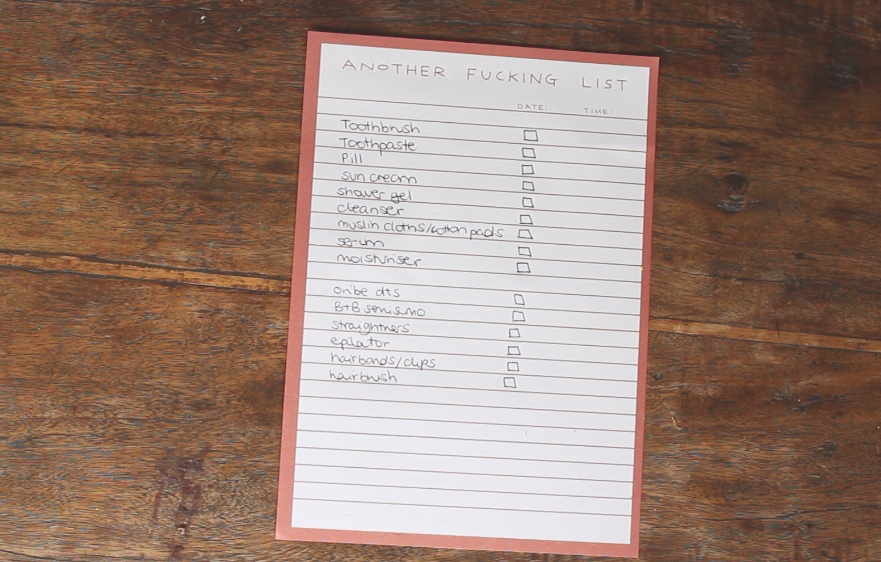 ANOTHER FUCKING LIST
DATE: TIME:
Toothbrush
Toothpaste
Pill
sun cream
shower gel
cleanser
muslin cloths/cotton pads
serum
moisturiser
oribe dts
B+B
straightners
epilator
hairbands/clips
hairbrush